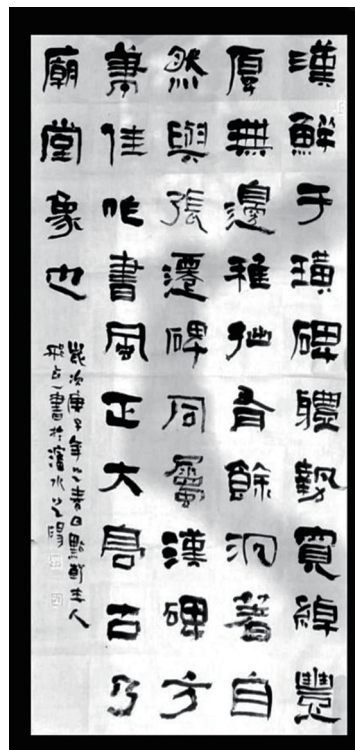 漢鮮于璜碑體勢寬綽豐
厚無邊雅拙有餘沉著自
然與張遷碑同屬漢碑方
筆佳作書風正大高古乃
廟堂象也
歲次庚子年之春日主人
書於瀋水之陽